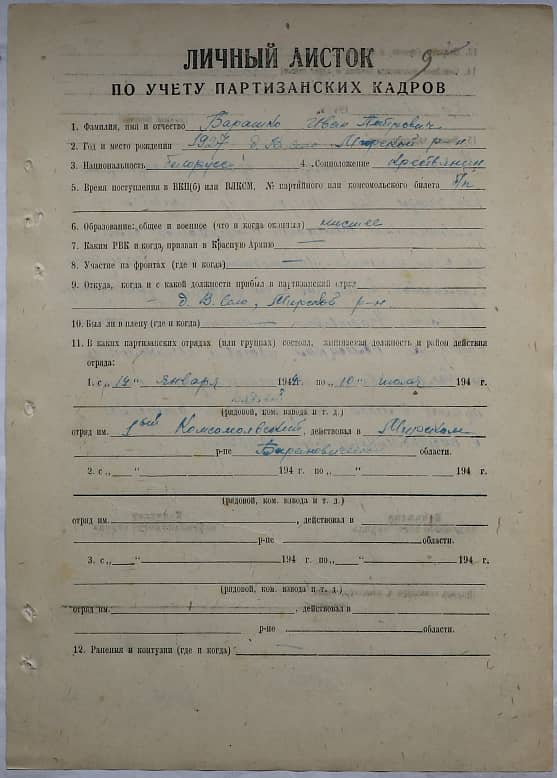 ЛИЧНЫЙ ЛИСТОК
9
ПО УЧЕТУ ПАРТИЗАНСКИХ КАДРОВ
1. Фамилия, имя и отчество Барашко Иван Петрович
2. Год и место рождения 1927 д. В. Село Мирский р-н
3. Национальность белорусс 4. Соцположение крестьянин
5. Время поступления в ВКП(б) или ВЛКСМ, № партийного или комсомольского билета б/п
6. Образование: общее и военное (что и когда окончил) низшее
7. Каким РВК и когда, призван в Красную Армию —
8. Участие на фронтах (где и когда) —
9. Откуда, когда и с какой должности прибыл в партизанский отряд
— д. В. Село, Мирский р-н
10. Был ли в плену (где и когда) —
11. В каких партизанских отрядах (или группах) состоял, занимаемая должность и район действия
отряда:
1. с „14“ января 1944 г. по „10“ июля 194 г.
(рядовой, ком. взвода и т. д.)
отряд им. 1вый Комсомольский, действовал в Мирском
р-не Барановической области.
2. с „ “ 194 г. по „ “ 194 г.
(рядовой, ком. взвода и т. д.)
отряд им. , действовал в
р-не области.
3. с „ “ 194 г. по „ “ 194 г.
(рядовой, ком. взвода и т. д.)
отряд им. , действовал в
р-не области.
12. Ранения и контузии (где и когда) —